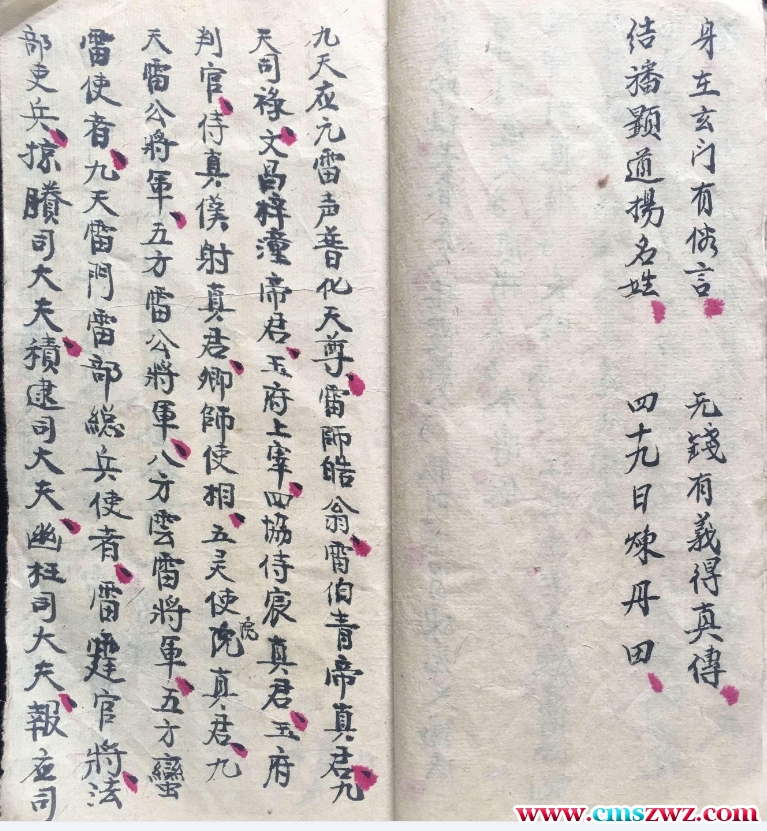 身在玄门有俗言 无錢有義得真傳
结旛顕道揚名姓 四十九日煉丹田
九天应元雷声普化天尊雷師皓翁雷伯青帝真君九
天司祿文昌梓潼帝君玉府上宰四協侍宸真君玉府
判官侍真僕射真君卿師使相五灵使院真君九
院
天雷公將軍五方雷公將軍八方雲雷將軍五方蠻
雷使者九天雷門雷部総兵使者雷霆官將法
部吏兵掠賸司大夫積逮司大夫幽枉司大夫報应司
www.cmszwz.com